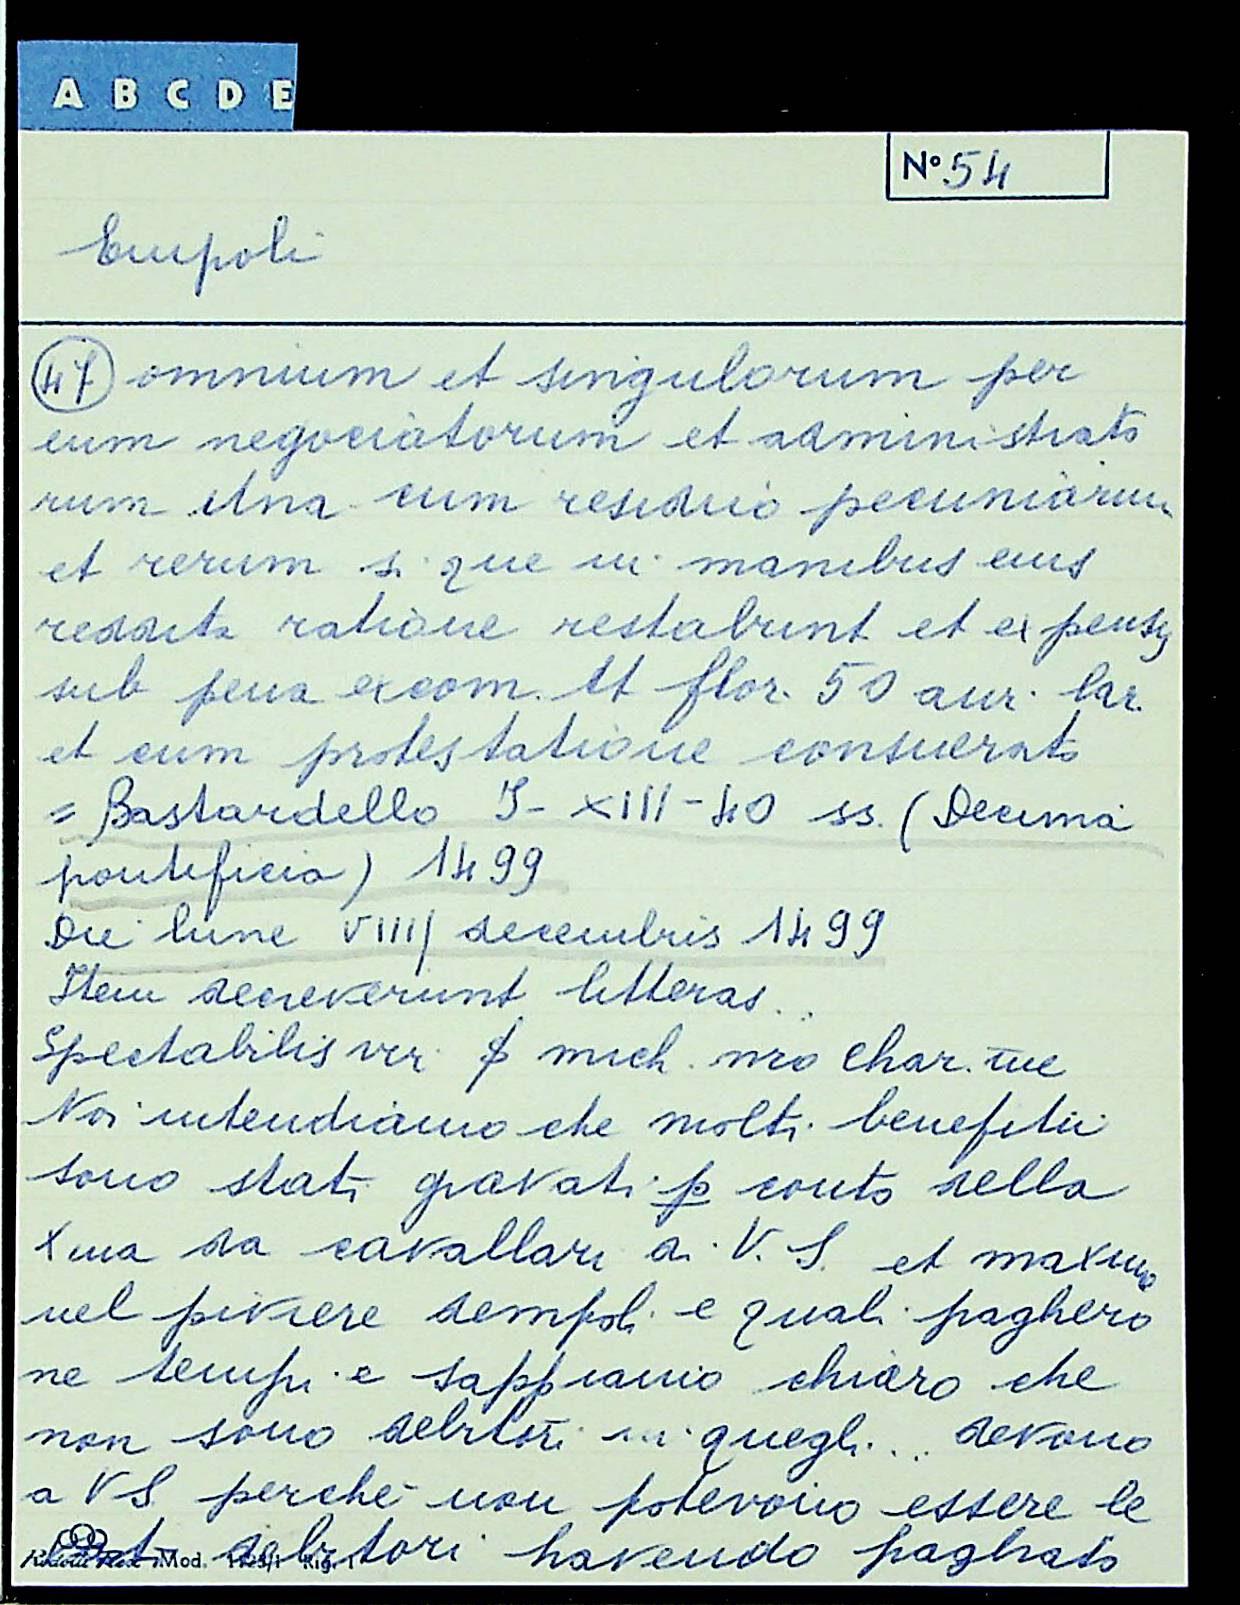 A B C D E
N° 54
Empoli
47 omnium et singulorum per
eum negociatorum et administrato
rum una cum residuo pecuniarum
et rerum si que in manibus eius
reddita ratione restabunt et expensis
sub pena excom. et flor. 50 aur. lar.
et cum protestatione consuerato
= Bastardello I-XIII-40 ss. (Decima
pontificia) 1499
Die lune VIIII decembris 1499
Item decreverunt litteras...
Spectabilis vir mich. nro char. me
Noi intendiamo che molti benefitii
sono stati gravati p conto della
Xma da cavallari di V. S. et maximo
nel piviere dempoli e quali paghero
ne tempi e sappiamo chiaro che
non sono debitori in quegli... devono
a V S perche non potevono essere le
debitori havendo paghato
Mod. Rig. 1